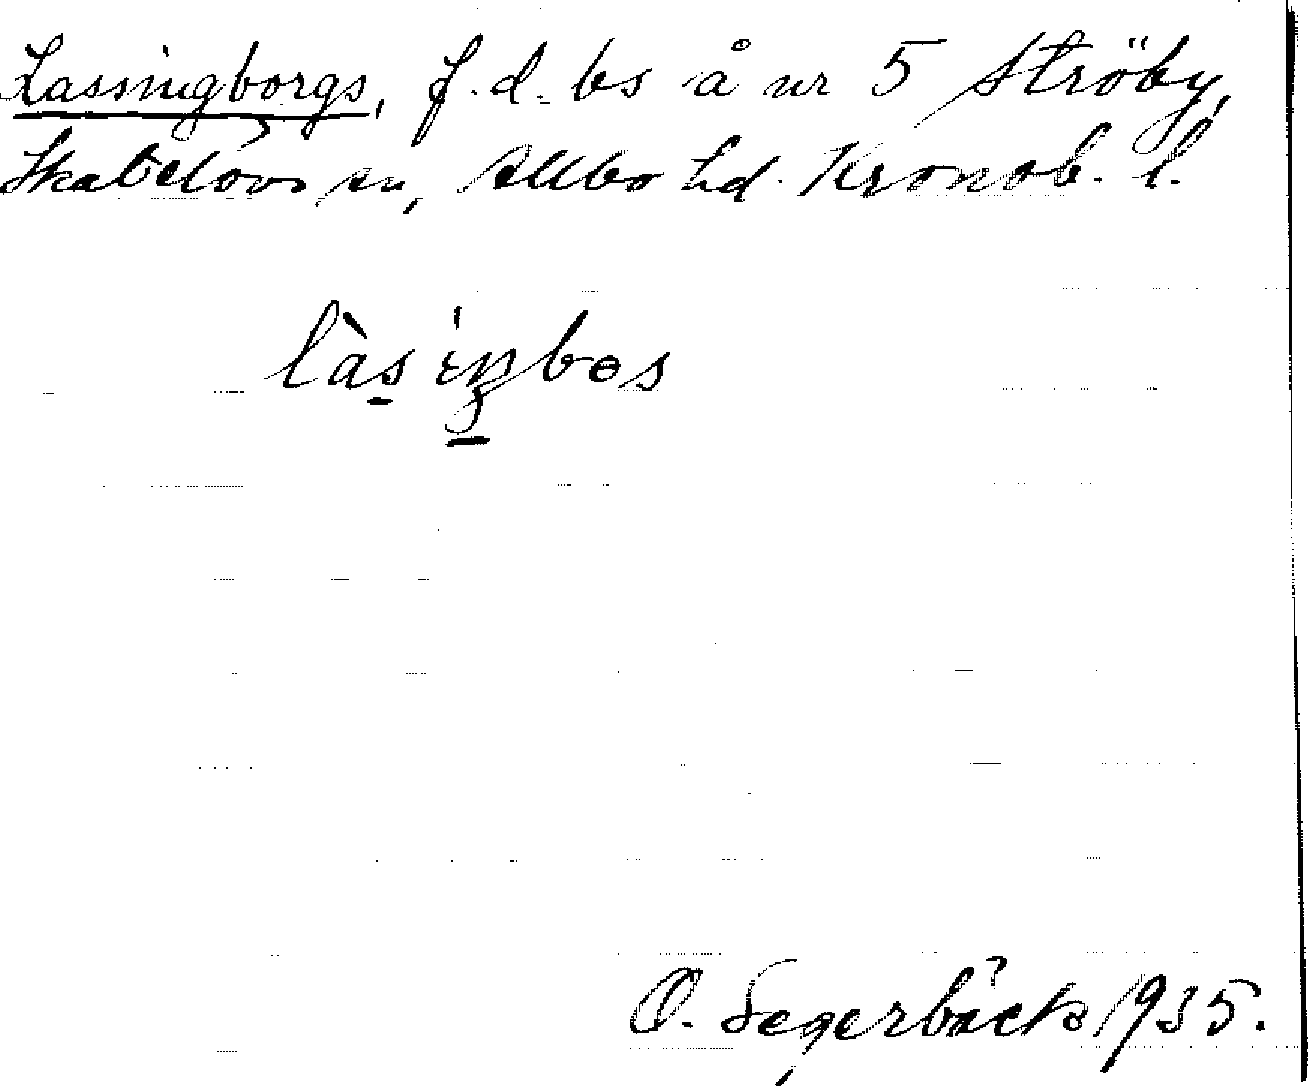 Lassingborgs, f.d. bs å nr 5 Ströby,
Skatelövs sn, Allbo hd. Kronob. l.
làsıŋbɵs
O. Segerbäck 1935.